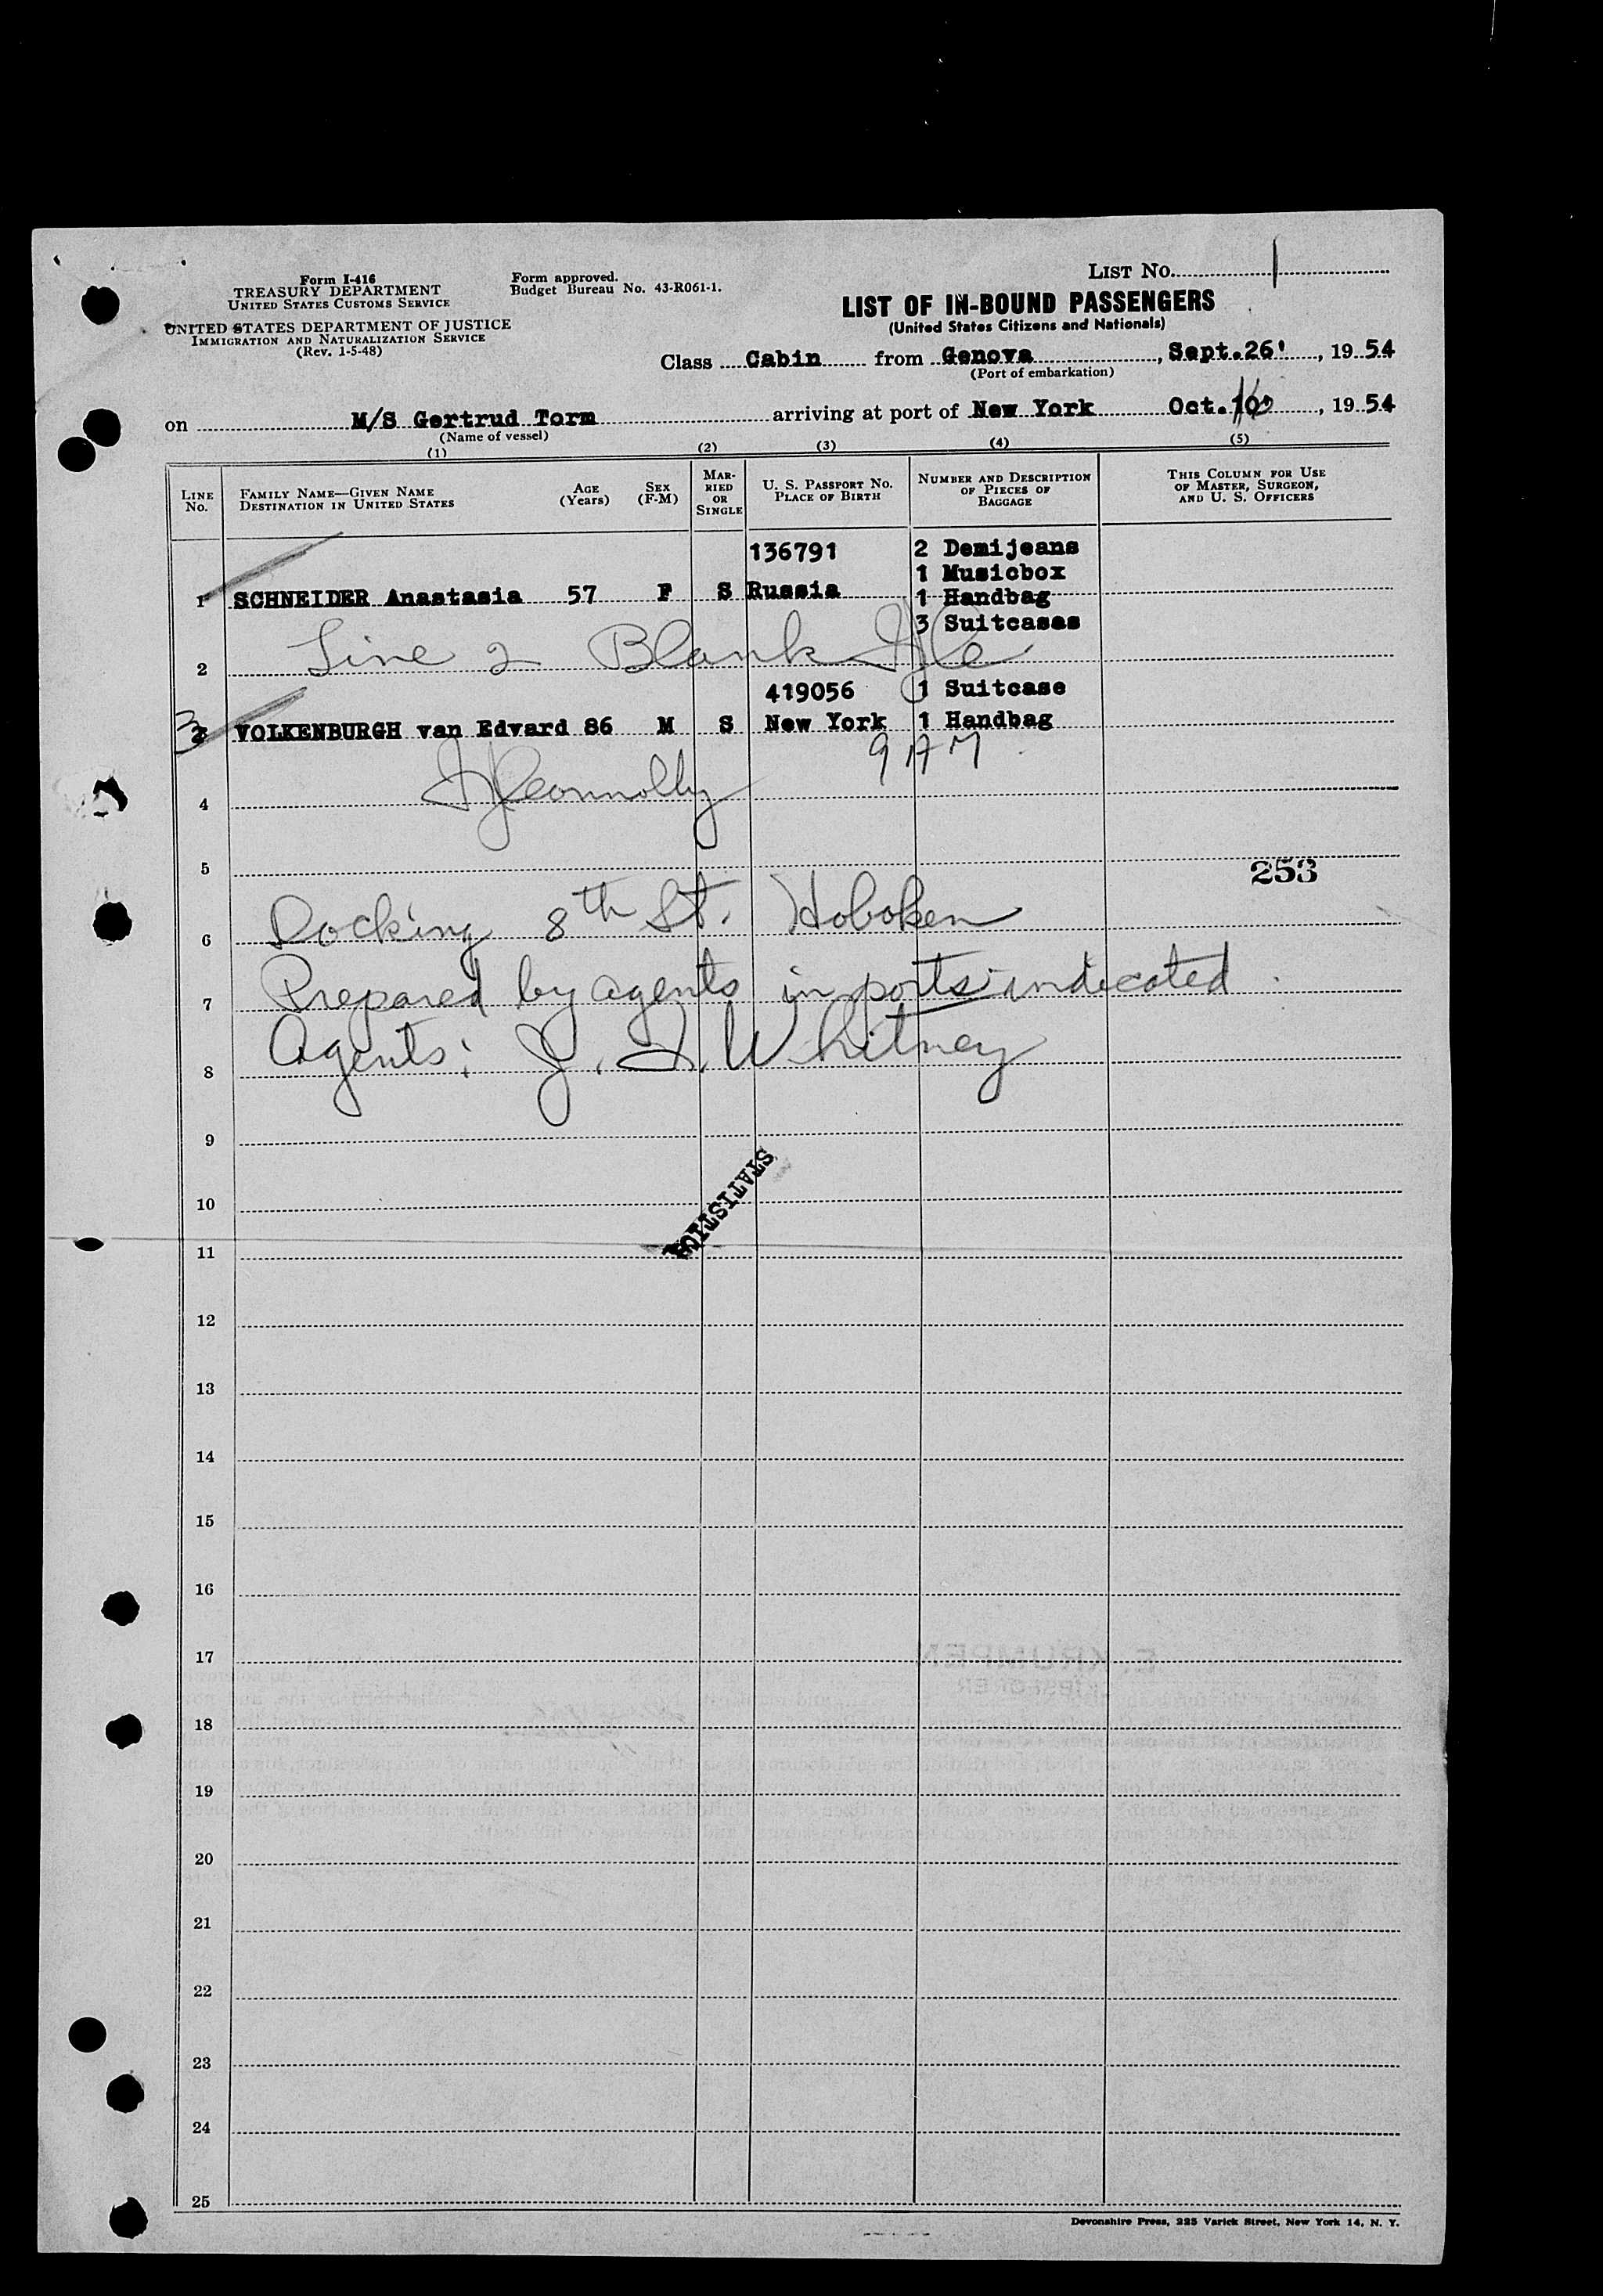 LIST No. 1
Form I-416
TREASURY DEPARTMENT
UNITED STATES CUSTOMS SERVICE
UNITED STATES DEPARTMENT OF JUSTICE
IMMIGRATION AND NATURALIZATION SERVICE
(Rev. 1-5-48)
Form approved.
Budget Bureau No. 43-R061-1.
LIST OF IN-BOUND PASSENGERS
(United States Citizens and Nationals)
Class Cabin from Genova, Sept.26', 1954
(Port of embarkation)
on M/S Gertrud Torm arriving at port of New York Oct. , 1954
(Name of vessel)
(1) (2) (3) (4) (5)
LINE No.
FAMILY NAME—GIVEN NAME
DESTINATION IN UNITED STATES
AGE (Years)
SEX (F-M)
MARRIED OR SINGLE
U. S. PASSPORT No.
PLACE OF BIRTH
NUMBER AND DESCRIPTION OF PIECES OF BAGGAGE
THIS COLUMN FOR USE OF MASTER, SURGEON, AND U. S. OFFICERS
136791 2 Demijeans
1 Musicbox
1 SCHNEIDER Anastasia 57 F S Russia 1 Handbag
3 Suitcases
2 Line 2 Blank
419056 1 Suitcase
3 VOLKENBURGH van Edvard 86 M S New York 1 Handbag
9 AM
4 Connolly
5
253
6 Docking 8th St. Hoboken
7 Prepared by agents in ports indicated.
8 Agents: J. F. Whitney
9
STATISTICAL
10
11
12
13
14
15
16
17
18
19
20
21
22
23
24
25
Devonshire Press, 225 Varick Street, New York 14, N. Y.